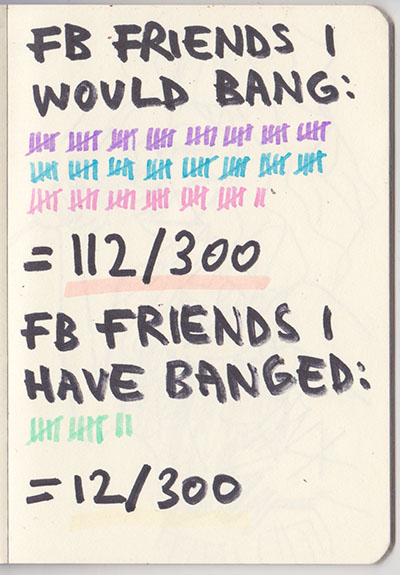 FB FRIENDS I
WOULD BANG:
= 112/300
FB FRIENDS I
HAVE BANGED:
= 12/300